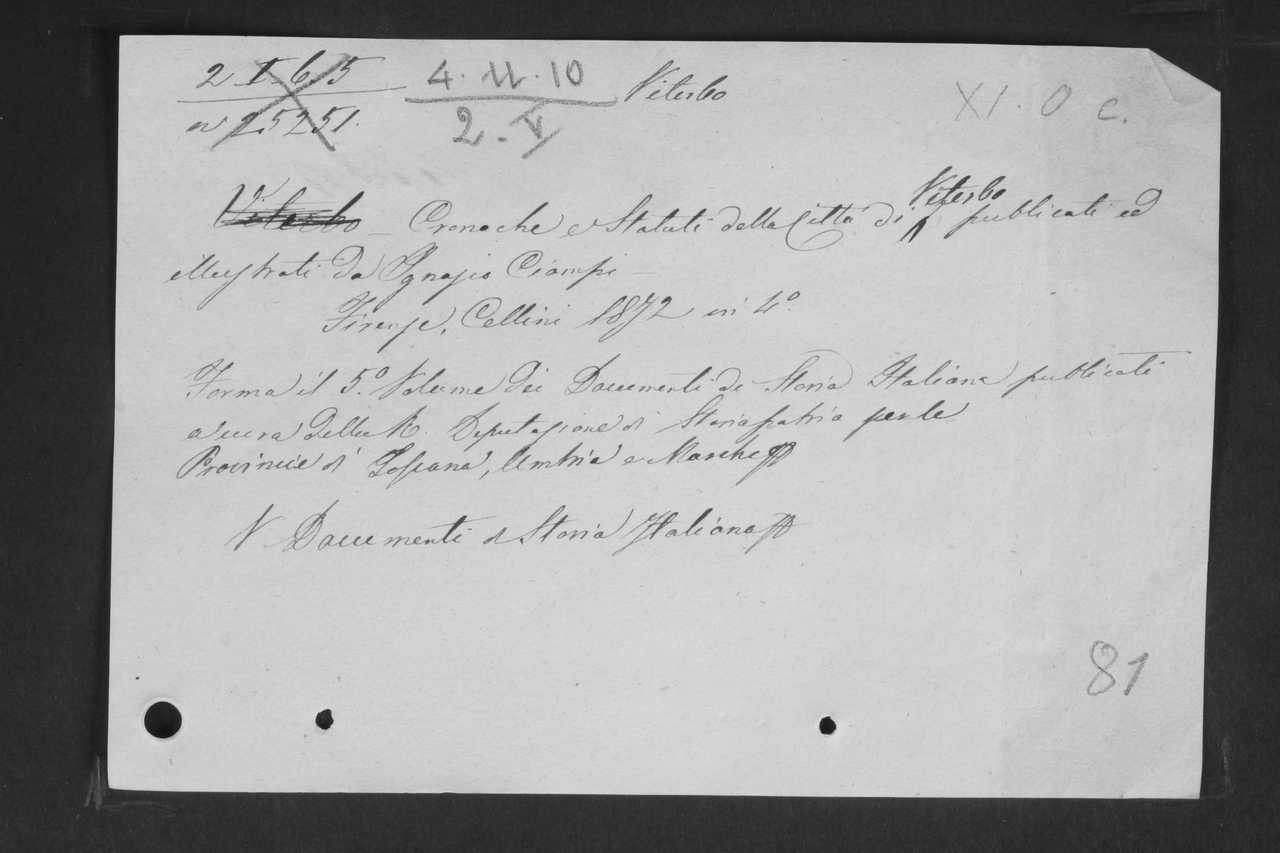 2 I. 6. 5
4. 11. 10 Viterbo
XI. O c.
25251.
2. V
Viterbo – Cronache e Statuti della Città di Viterbo pubblicati ed
illustrati da Ignazio Ciampi –
Firenze, Cellini 1872 in 4º.
Forma il 5º. Volume dei Documenti di Storia Italiana pubblicati
a cura della R. Deputazione di Storia patria per le
Provincie di Toscana, Umbria e Marche
V Documenti di Storia Italiana
81